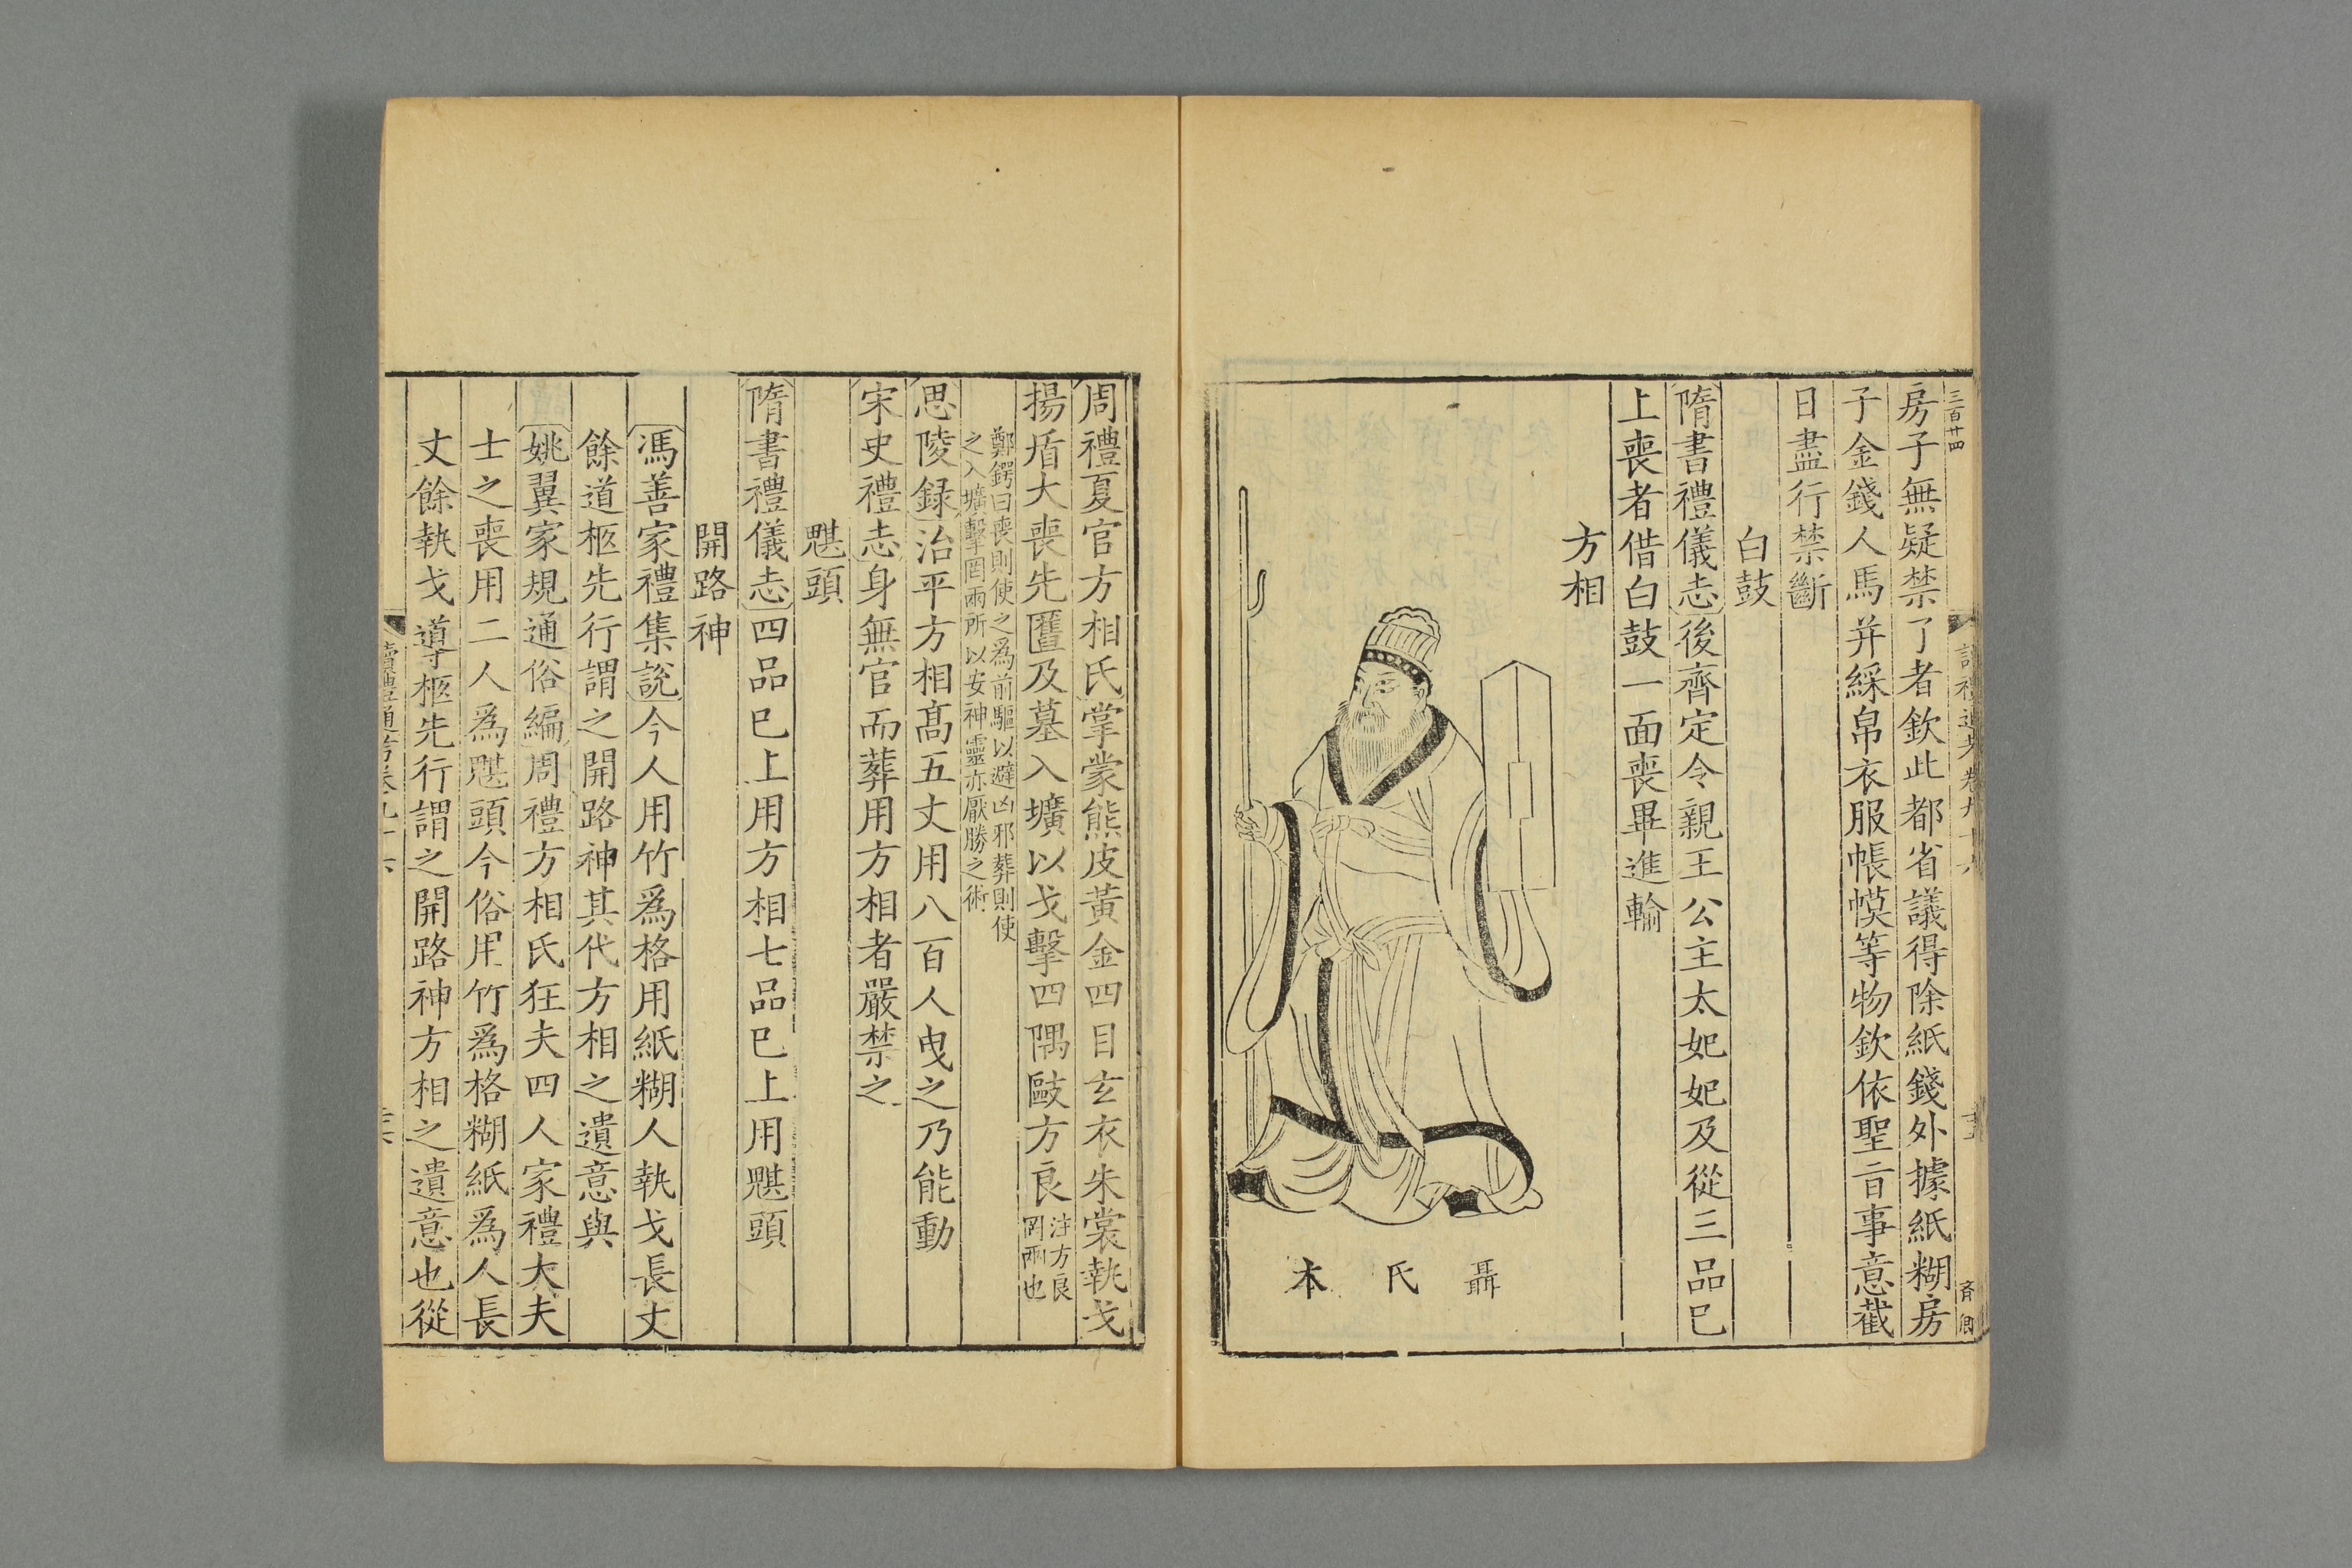 三百廿四
讀禮通考卷九十六
齊卿
房子無疑禁了者欽此都省議得除紙錢外據紙糊房
子金錢人馬并綵帛衣服帳幙等物欽依聖旨事意截
日盡行禁斷
白鼓
隋書禮儀志後齊定令親王公主太妃妃及從三品已
上喪者借白鼓一面喪畢進輸
方相
聶氏本
周禮夏官方相氏掌蒙熊皮黃金四目玄衣朱裳執戈
揚盾大喪先匶及墓入壙以戈擊四隅毆方良注方良罔兩也
鄭鍔曰喪則使之爲前驅以避凶邪葬則使
之入壙擊罔兩所以安神靈亦厭勝之術
思陵録治平方相髙五丈用八百人曳之乃能動
宋史禮志身無官而葬用方相者嚴禁之
魌頭
隋書禮儀志四品已上用方相七品已上用魌頭
開路神
馮善家禮集說今人用竹爲格用紙糊人執戈長丈
餘道柩先行謂之開路神其代方相之遺意與
姚翼家規通俗編周禮方相氏狂夫四人家禮大夫
士之喪用二人爲魌頭今俗用竹爲格糊紙爲人長
丈餘執戈導柩先行謂之開路神方相之遺意也從
讀禮通考卷九十六